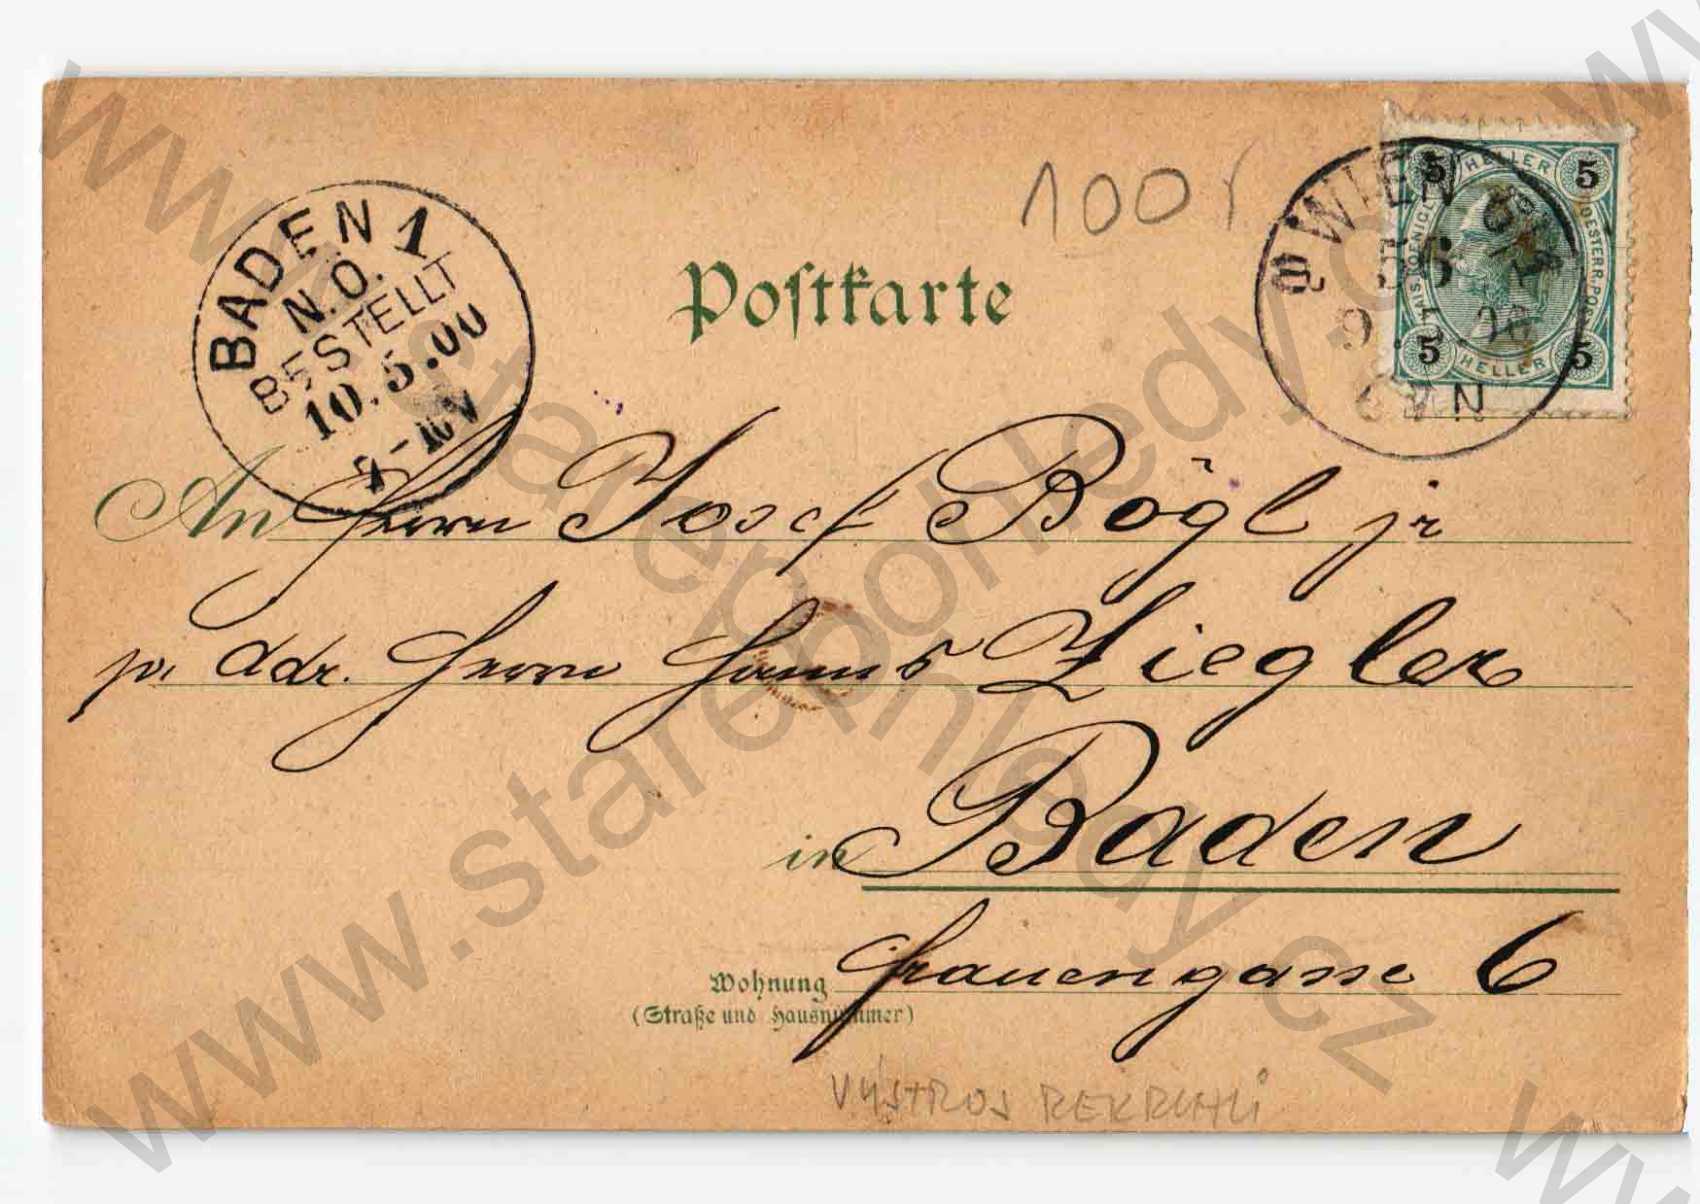 100
WIEN
9
N
5 HELLER 5
KAIS. KÖNIGL. OESTERR. POST
5 HELLER 5
BADEN 1
N.Ö.
BESTELLT
10.5.00
Postkarte
An Herrn Josef Bögl jr
pr. Adr. Herrn Hanns Ziegler
in Baden
Wohnung Frauengasse 6
(Straße und Hausnummer)
VÝSTROJ REKRUTŮ
www.starepohledy.cz
www.starepohledy.cz